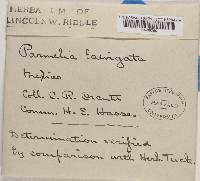 HERBARIUM OF
LINCOLN W. RIDDLE
Parmelia laevigata
Mexico
Coll. C. R. Orcutt
Comm. H. E. Hasse.
Determination verified
by comparison with Herb. Tuck.